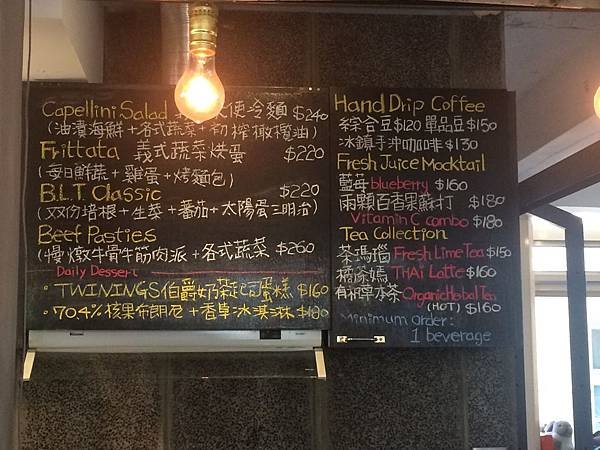 Capellini Salad 便冷麵 $240
(油漬海鮮+各式蔬菜+初榨橄欖油)
Frittata 義式蔬菜烘蛋 $220
(每日鮮蔬+雞蛋+烤麵包)
B.L.T. Classic $220
(双份培根+生菜+番茄+太陽蛋三明治)
Beef Pasties
(慢燉牛骨牛筋肉派+各式蔬菜 $260
Daily Dessert
・TWININGS伯爵奶茶起司蛋糕 $160
・704%核果布朗尼+香草冰淇淋 $180
Hand Drip Coffee
綜合豆$120 單品豆$150
冰鎮手沖咖啡 $130
Fresh Juice Mocktail
藍莓 blueberry $160
兩顆百香果蘇打 $180
Vitamin C combo $180
Tea Collection
茶瑪瑙 Fresh Lime Tea $150
橘茶嫣 THAi Latte $160
有機草本茶 Organic Herbal Tea
(HOT) $160
Minimum order:
1 beverage